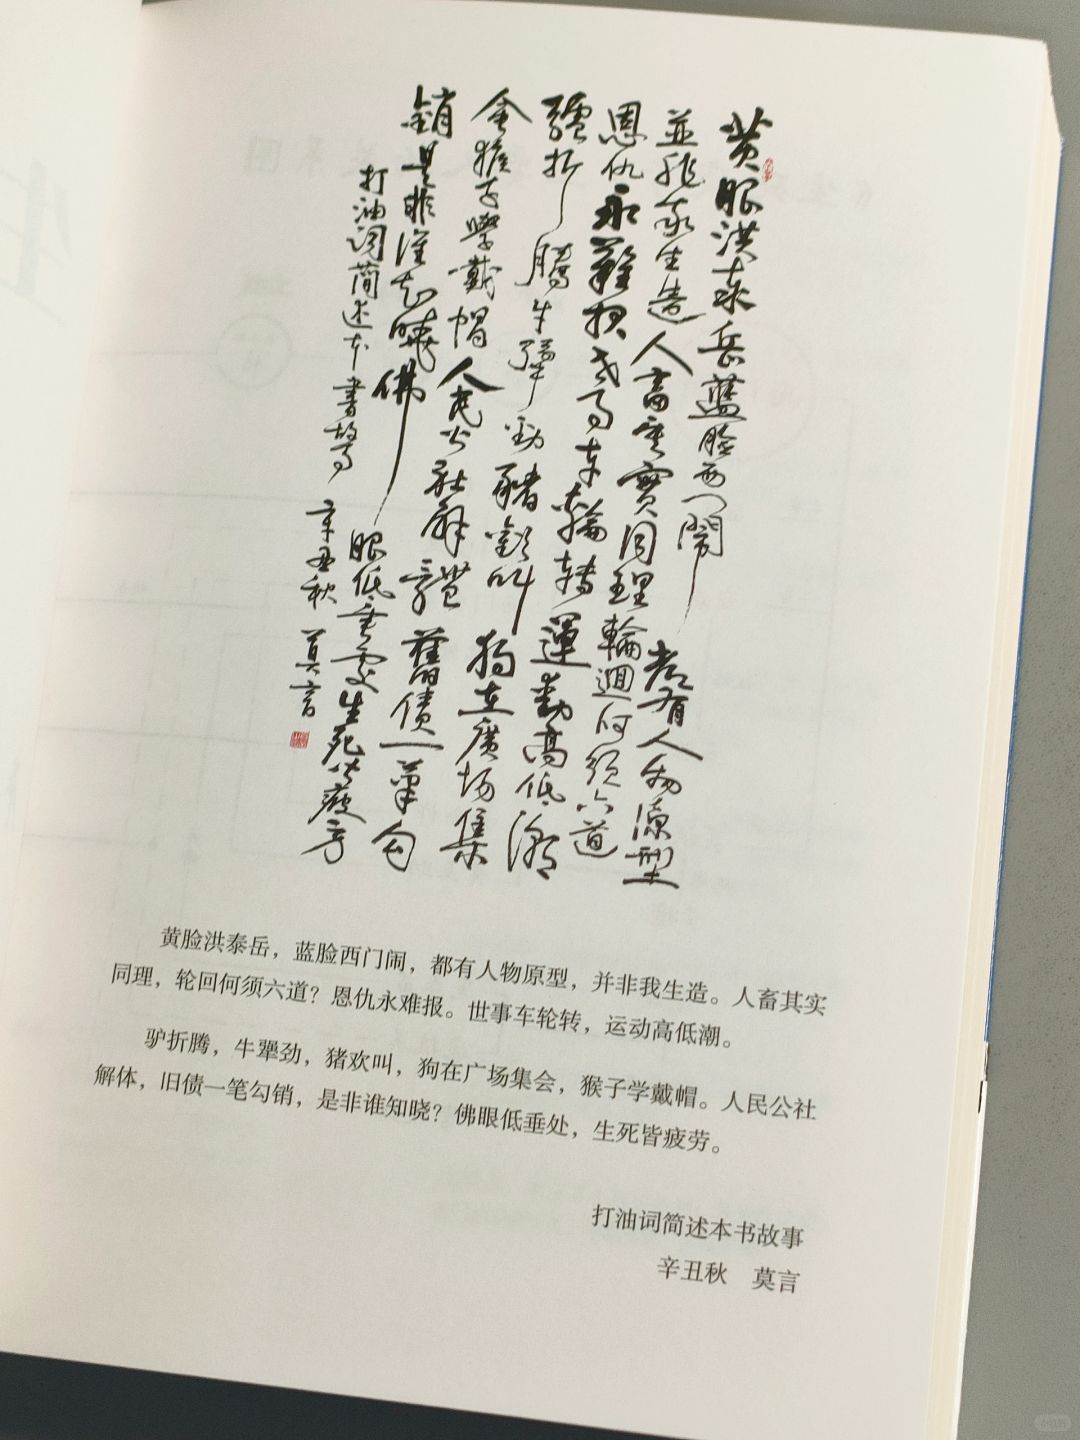 黄眼洪泰岳藍脸西门鬧都有人物源型
並非我生造人畜其實同理輪迴何須六道
恩仇永難报世事车輪转運動高低潮
驢折腾牛犟勁豬歡叫狗在廣场集
會猴子學戴帽人民公社解體舊债一筆勾
銷是非谁知曉佛眼低垂處生死皆疲劳
打油词简述本書故事 辛丑秋 莫言
黄脸洪泰岳，蓝脸西门闹，都有人物原型，并非我生造。人畜其实
同理，轮回何须六道？恩仇永难报。世事车轮转，运动高低潮。
驴折腾，牛犟劲，猪欢叫，狗在广场集会，猴子学戴帽。人民公社
解体，旧债一笔勾销，是非谁知晓？佛眼低垂处，生死皆疲劳。
打油词简述本书故事
辛丑秋 莫言